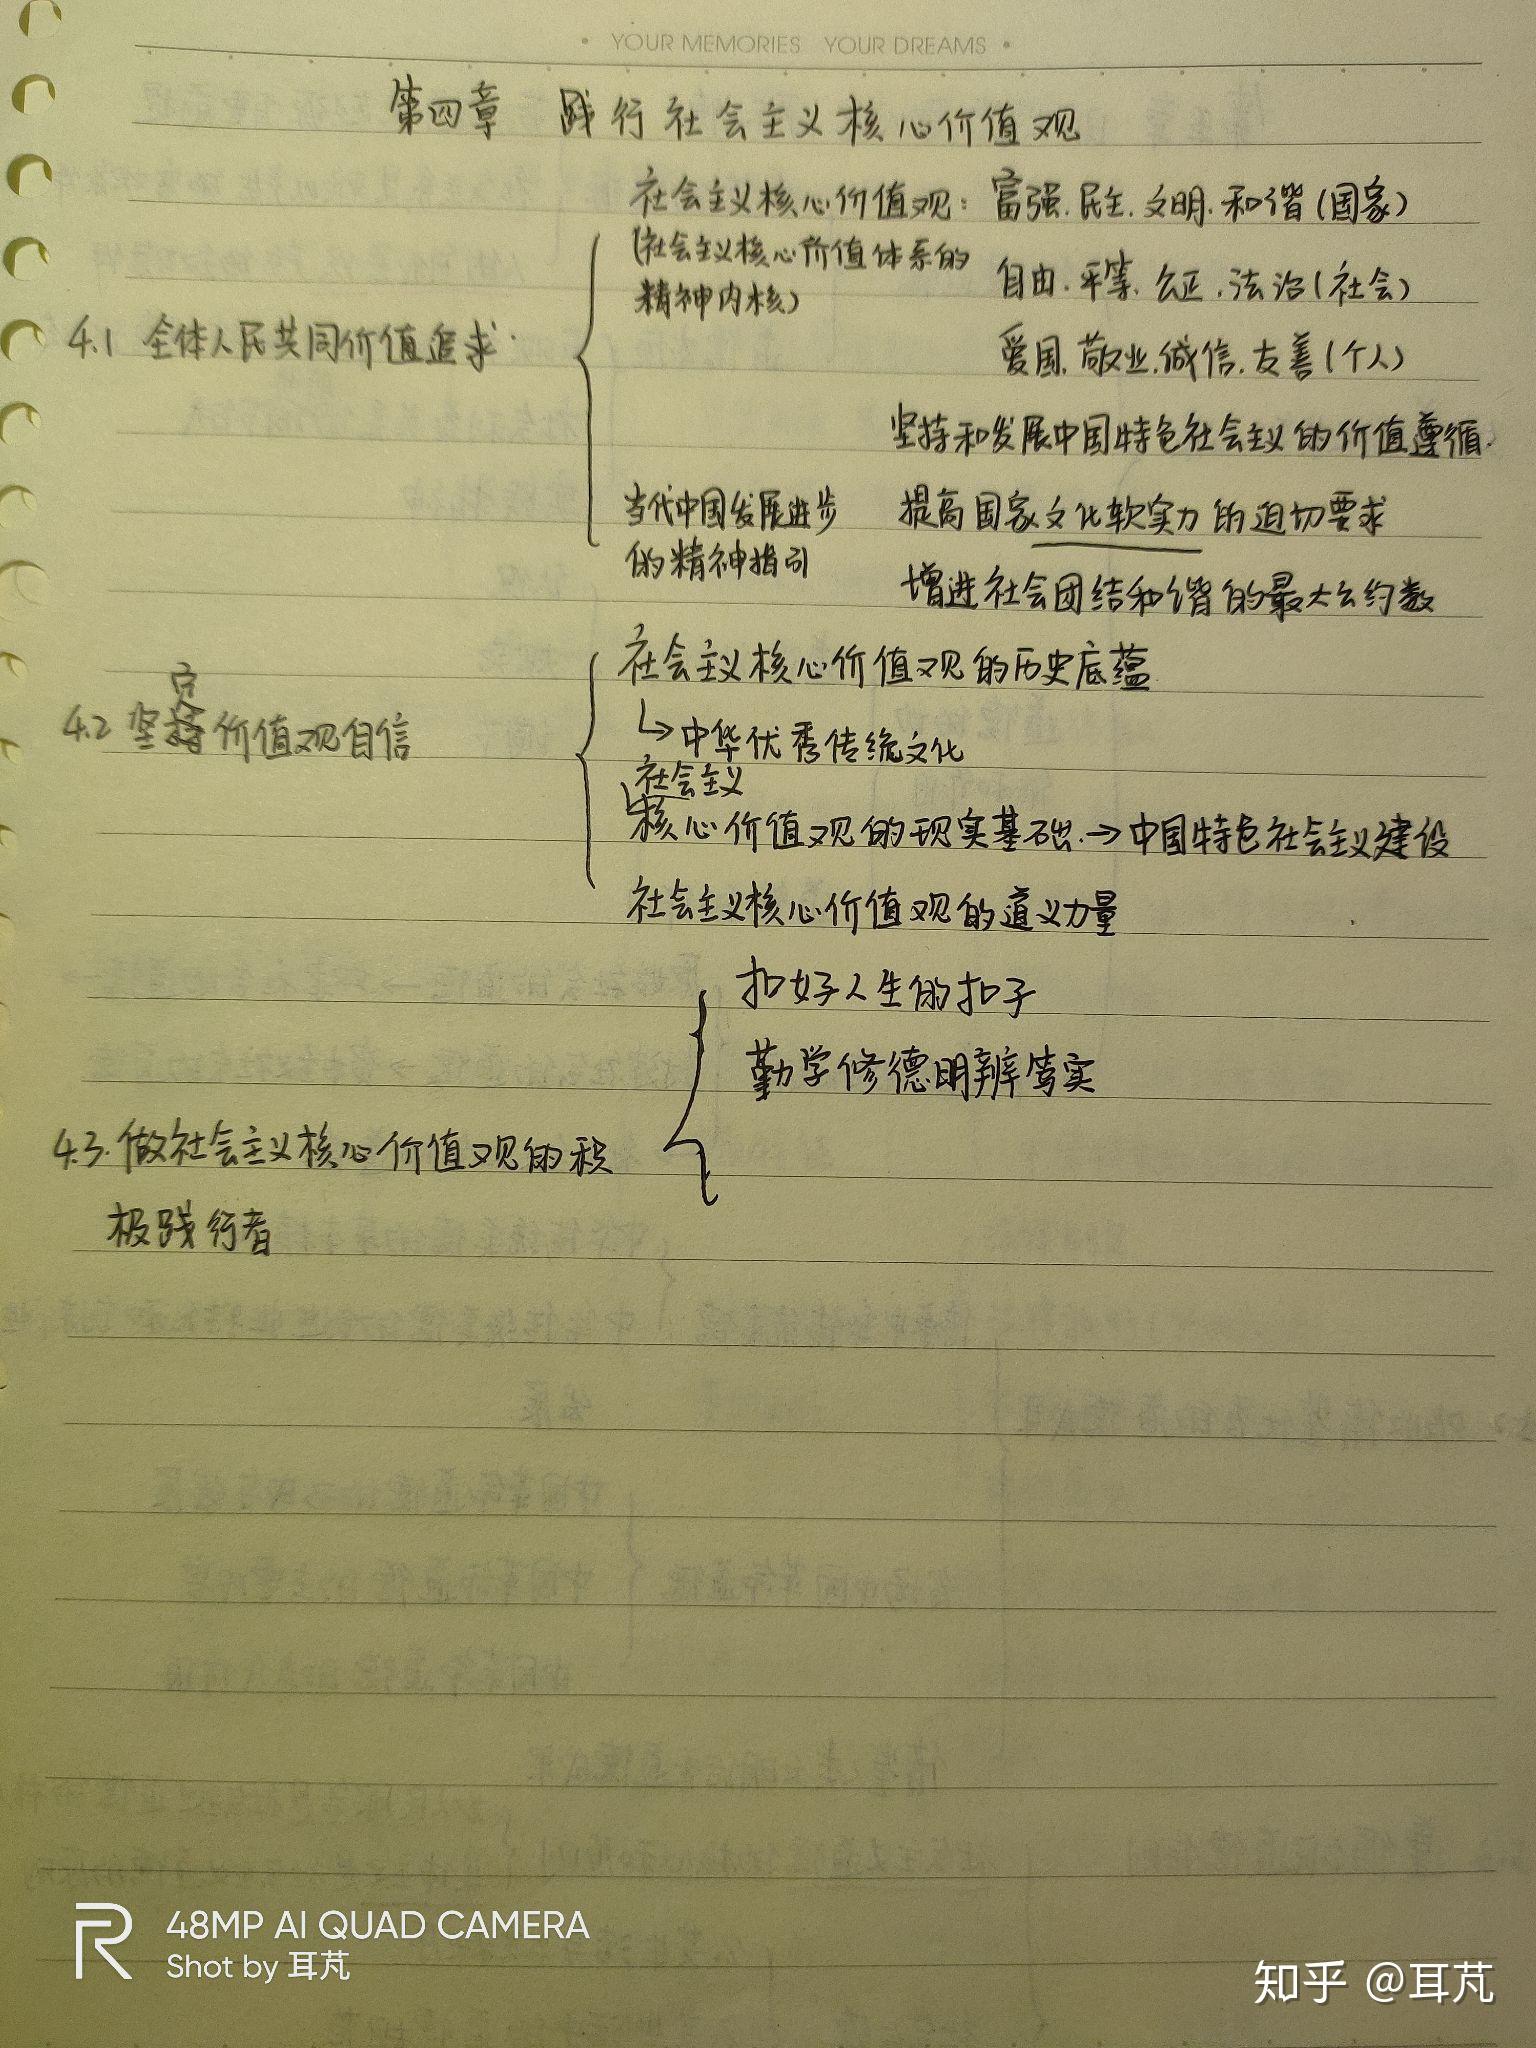 YOUR MEMORIES YOUR DREAMS
第四章 践行社会主义核心价值观
社会主义核心价值观：富强.民主.文明.和谐(国家)
(社会主义核心价值体系的
精神内核)
自由.平等.公正.法治(社会)
4.1 全体人民共同价值追求.
爱国.敬业.诚信.友善(个人)
坚持和发展中国特色社会主义的价值遵循.
当代中国发展进步
的精神指引
提高国家文化软实力的迫切要求
增进社会团结和谐的最大公约数
社会主义核心价值观的历史底蕴
定
4.2 坚持价值观自信
↳中华优秀传统文化
社会主义
核心价值观的现实基础.→中国特色社会主义建设
社会主义核心价值观的道义力量
扣好人生的扣子
勤学修德明辨笃实
4.3.做社会主义核心价值观的积
极践行者
48MP AI QUAD CAMERA
Shot by 耳芃
知乎 @耳芃